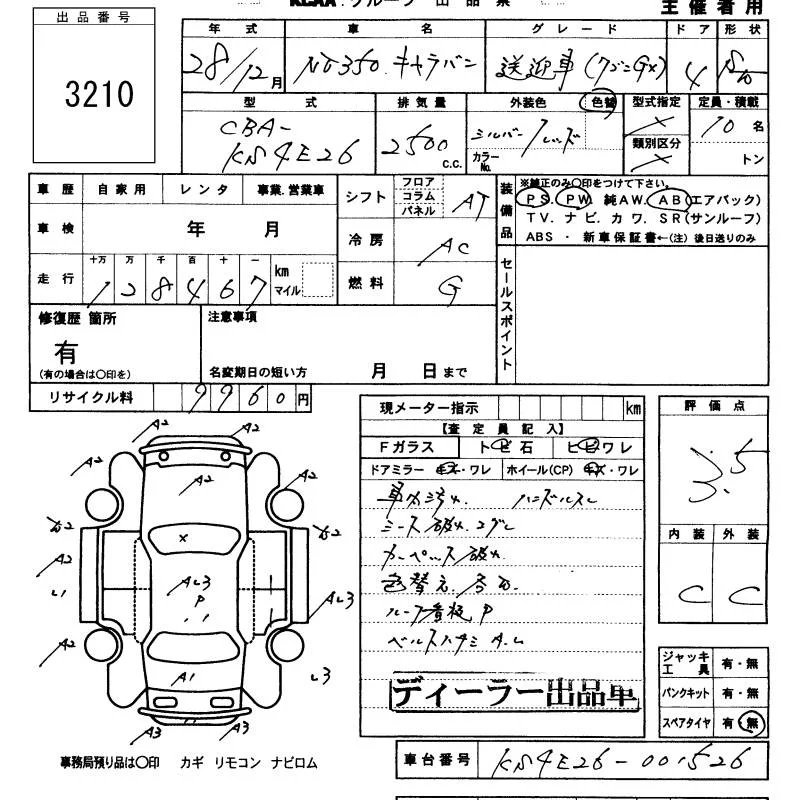 KCAA.グループ 出品票
主催者用
出品番号
3210
年式 車名 グレード ドア 形状
28/12月 NV350 キャラバン 送迎車 4
型式 排気量 外装色 色替 型式指定 定員・積載
CBA-
KS4E26 2500 c.c. シルバー/レッド 10名
カラーNo. 類別区分 トン
車歴 自家用 レンタ 事業.営業車
車検 年 月
走行 十万 万 千 百 十 一
128467 km マイル
シフト フロア コラム パネル AT
冷房 AC
燃料 G
装備品
※純正のみ〇印をつけて下さい。
PS. PW. 純AW. AB(エアバック)
TV. ナビ. カワ. SR(サンルーフ)
ABS ・ 新車保証書←(注) 後日送りのみ
セールスポイント
修復歴 箇所
有
(有の場合は〇印を)
注意事項
名変期日の短い方 月 日まで
リサイクル料 9960円
現メーター指示 km
【査定員記入】
Fガラス トビ石 ヒビワレ
ドアミラー キズ・ワレ ホイール(CP) キズ・ワレ
車内汚れ ハンドルスレ
シート破れ コゲ
カーペット破れ
色替え
ルーフ看板P
ディーラー出品車
評価点
3.5
内装 外装
C C
ジャッキ工具 有・無
パンクキット 有・無
スペアタイヤ 有・無
A2 A2
A2
A2
X
A2 AL3 AL3
P
L1
A2
L3
A1
A3 A3
事務局預り品は〇印 カギ リモコン ナビロム
車台番号 KS4E26-001526